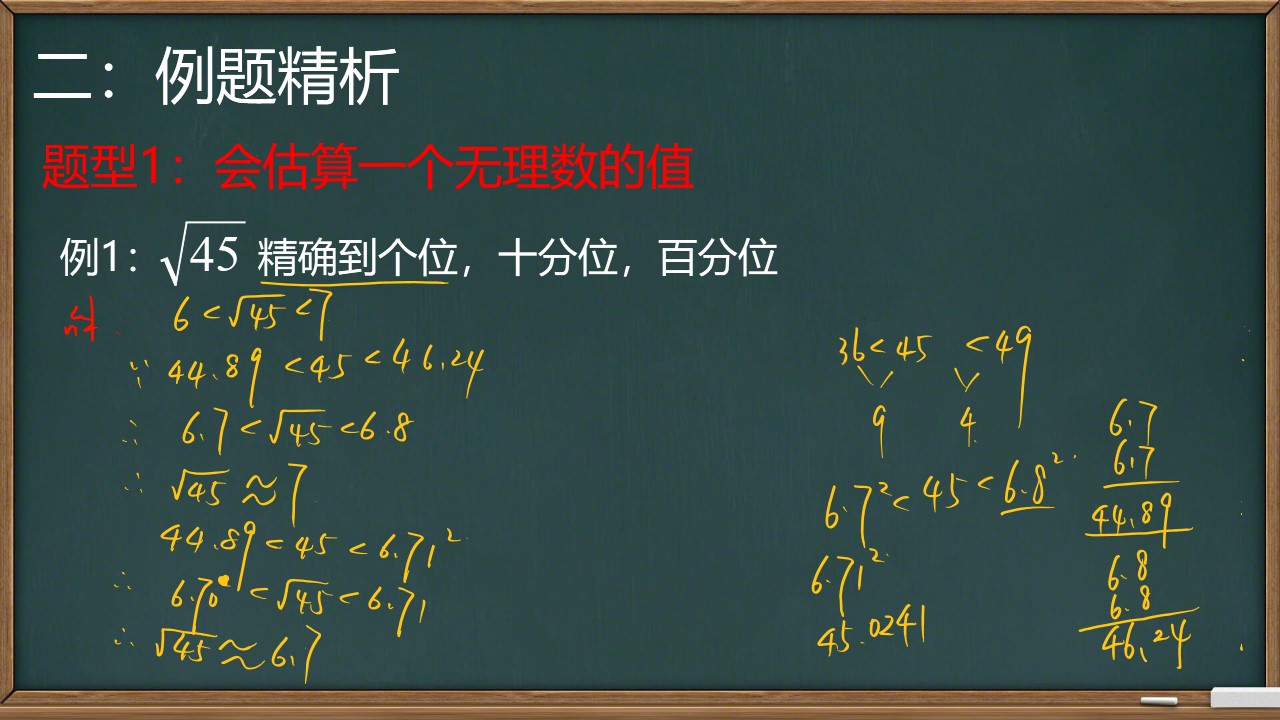 二：例题精析
题型1：会估算一个无理数的值
例1：√45 精确到个位，十分位，百分位
解
6<√45<7
∵ 44.89<45<46.24
∴ 6.7<√45<6.8
∴ √45≈7
44.89<45<6.71²
∴ 6.70<√45<6.71
∴ √45≈6.7
36<45<49
9 4
6.7²<45<6.8²
6.71²
45.0241
6.7
6.7
44.89
6.8
6.8
46.24